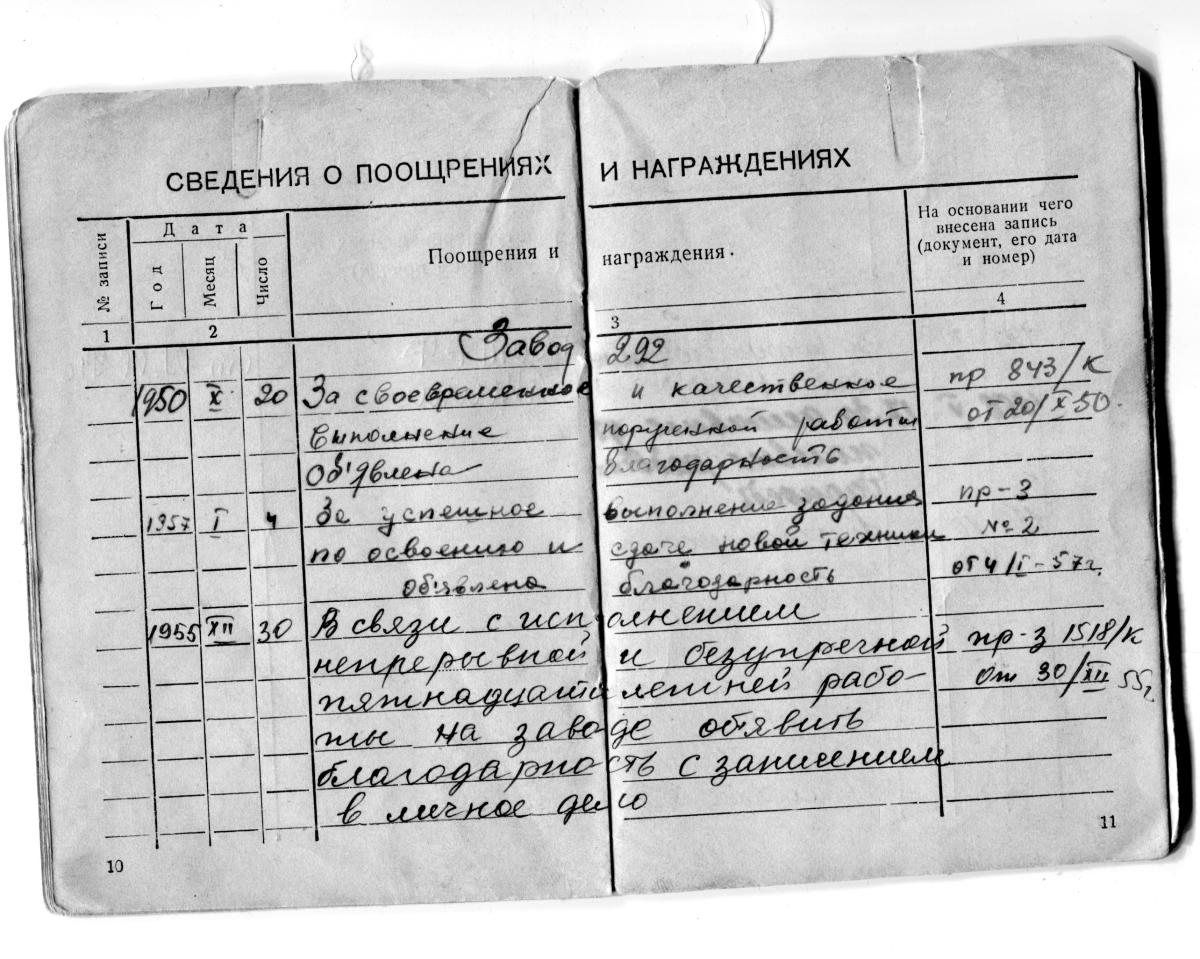 СВЕДЕНИЯ О ПООЩРЕНИЯХ И НАГРАЖДЕНИЯХ
№ записи
Дата
Год
Месяц
Число
Поощрения и награждения.
На основании чего
внесена запись
(документ, его дата
и номер)
1 2 3 4
Завод 292
1950 X 20 За своевременное и качественное пр 843/к
выполнение порученной работы от 20/X 50.
Об'явлена благодарность
1957 I 4 За успешное выполнение задания пр-з
по освоению и сдаче новой техники № 2
об'явлена благодарность от 4/I-57г.
1955 XII 30 В связи с исполнением
непрерывной и безупречной пр-з 1518/к
пятнадцатилетней рабо- от 30/XII 55г
ты на заводе обявить
благодарность с занесением
в личное дело
10
11